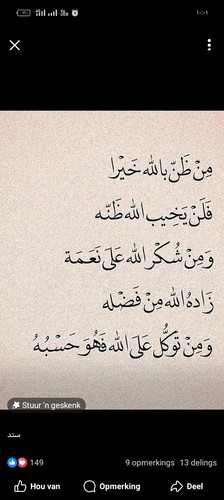 ١٠:٠١
مِنْ ظَنّ بالله خَيْرا
فَلَنْ يَخِيب الله ظَنّه
وَمِنْ شُكْر الله عَلىَ نَعَمَة
زَادهُ الله مِنْ فَضْله
وَمِنْ تَوَكُّل عَلىَ الله فَهُوَ حَسْبُهُ
Stuur 'n geskenk
سند
149 9 opmerkings 13 delings
Hou van Opmerking Deel